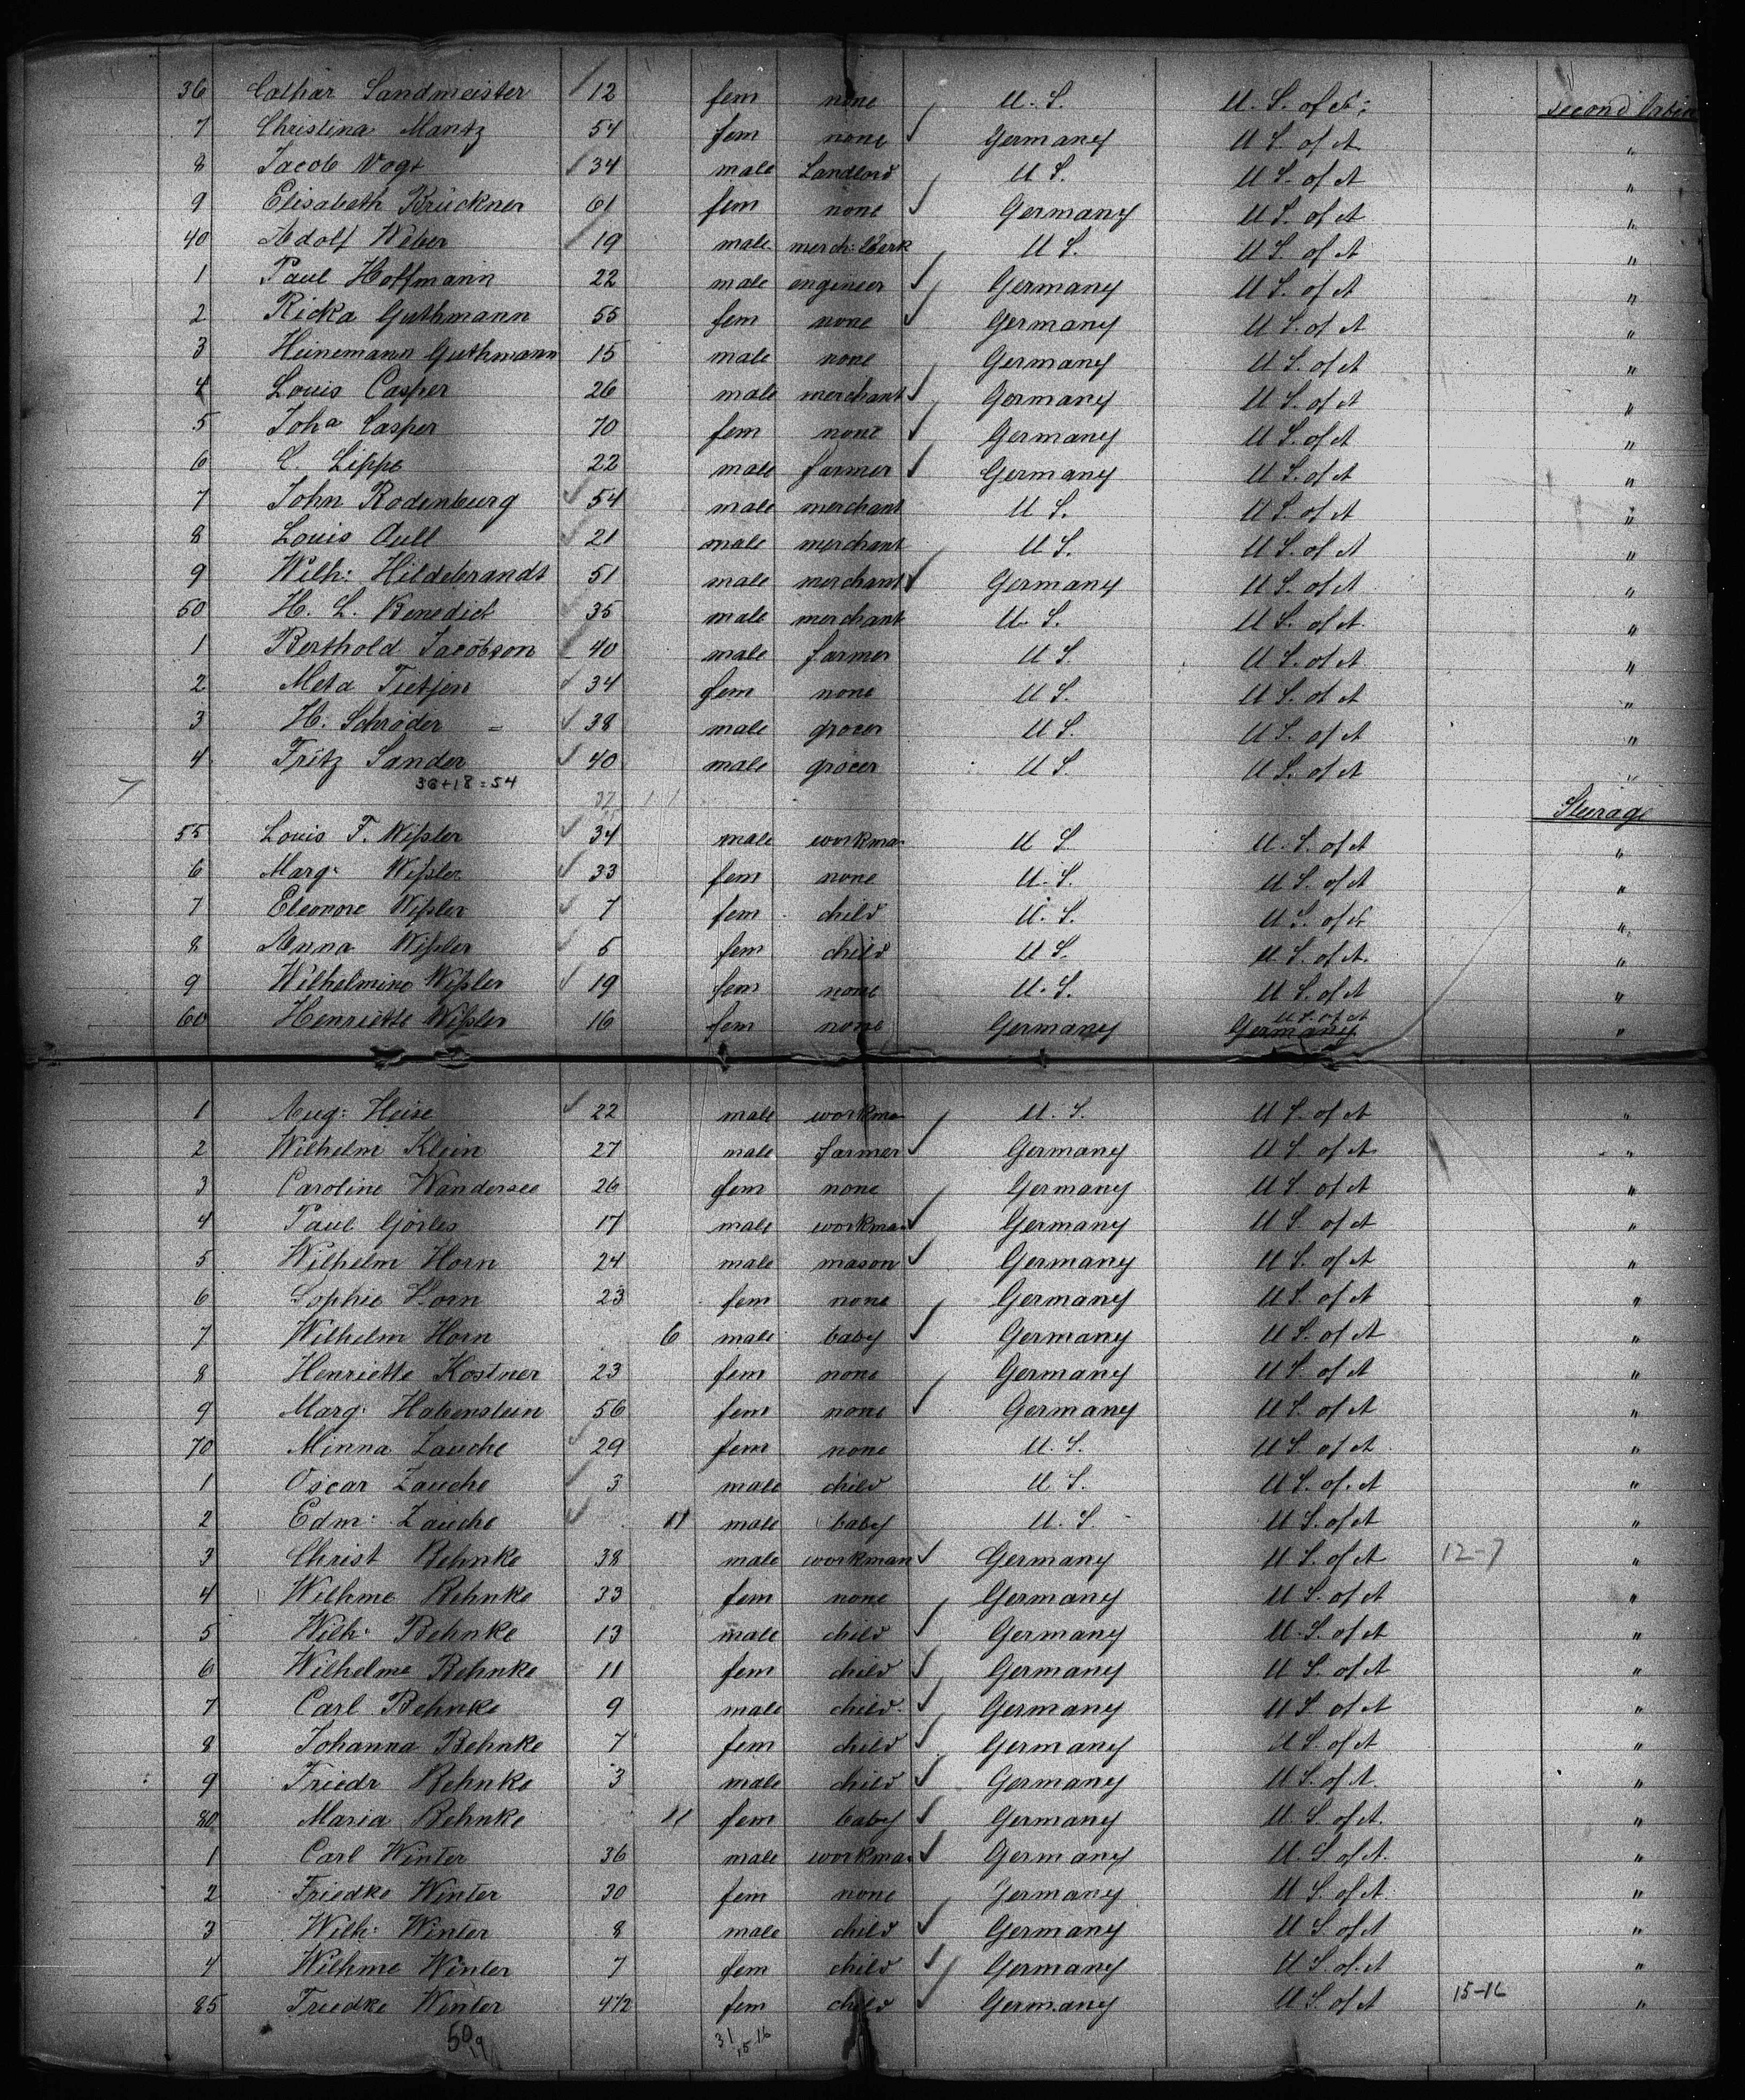 36 Cathar Sandmeister 12 fem none U. S. U. S. of A: second Cabin
7 Christina Mantz 54 fem none Germany U S. of A "
8 Jacob Vogt 34 male Landlord U S. U S. of A "
9 Elisabeth Brückner 61 fem none Germany U S. of A "
40 Adolf Weber 19 male merch: Clerk U S. U S. of A "
1 Paul Hoffmann 22 male engineer Germany U S. of A "
2 Ricka Guthmann 55 fem none Germany U S. of A "
3 Heinemann Guthmann 15 male none Germany U S. of A "
4 Louis Casper 26 male merchant Germany U S. of A "
5 Joha Casper 70 fem none Germany U S. of A "
6 C. Lippe 22 male farmer Germany U S. of A "
7 John Rodenburg 54 male merchant U S. U S. of A "
8 Louis Aull 21 male merchant U S. U S. of A "
9 Wilh: Hildebrandt 51 male merchant Germany U S. of A "
50 H. L. Benedict 35 male merchant U. S. U S. of A "
1 Berthold Jacobson 40 male farmer U S. U S. of A "
2 Meta Tietjen 34 fem none U S. U S. of A "
3 H. Schröder = 38 male grocer U S. U S. of A "
4 Fritz Sander 40 male grocer U S. U S. of A "
36+18=54
Sterage
55 Louis F. Wißler 34 male workman U S U. S. of A "
6 Marg: Wißler 33 fem none U. S. U S. of A "
7 Eleonore Wißler 7 fem child U. S. U S. of A "
8 Anna Wißler 5 fem child U S. U. S. of A. "
9 Wilhelmine Wißler 19 fem none U. S. U S. of A "
60 Henriette Wißler 16 fem none Germany Germany U S. of A "
1 Aug: Heise 22 male workman U. S. U S. of A "
2 Wilhelm Klein 27 male farmer Germany U S. of A "
3 Caroline Wandersee 26 fem none Germany U S of A "
4 Paul Görles 17 male workman Germany U S. of A "
5 Wilhelm Horn 24 male mason Germany U S. of A "
6 Sophie Horn 23 fem none Germany U S. of A "
7 Wilhelm Horn 6 male baby Germany U S. of A "
8 Henriette Kostner 23 fem none Germany U S. of A "
9 Marg: Habenstein 56 fem none Germany U S. of A "
70 Minna Zauche 29 fem none U. S. U S. of A "
1 Oscar Zauche 3 male child U S. U S. of A "
2 Edm: Zauche 11 male baby U. S. U S. of A "
3 Christ Behnke 38 male workman Germany U S. of A 12-7 "
4 Wilhme Behnke 33 fem none Germany U S. of A "
5 Wilh: Behnke 13 male child Germany U. S. of A "
6 Wilhelme Behnke 11 fem child Germany U S. of A "
7 Carl Behnke 9 male child Germany U S of A "
8 Johanna Behnke 7 fem child Germany U S. of A "
9 Friedr Behnke 3 male child Germany U S. of A. "
80 Maria Behnke 11 fem baby Germany U. S. of A. "
1 Carl Winter 36 male workman Germany U. S of A. "
2 Friedke Winter 30 fem none Germany U S. of A "
3 Wilh: Winter 8 male child Germany U S. of A "
4 Wilhme Winter 7 fem child Germany U S of A "
85 Friedke Winter 4 1/2 fem child Germany U S. of A 15-16 "
50 19 31 15 16